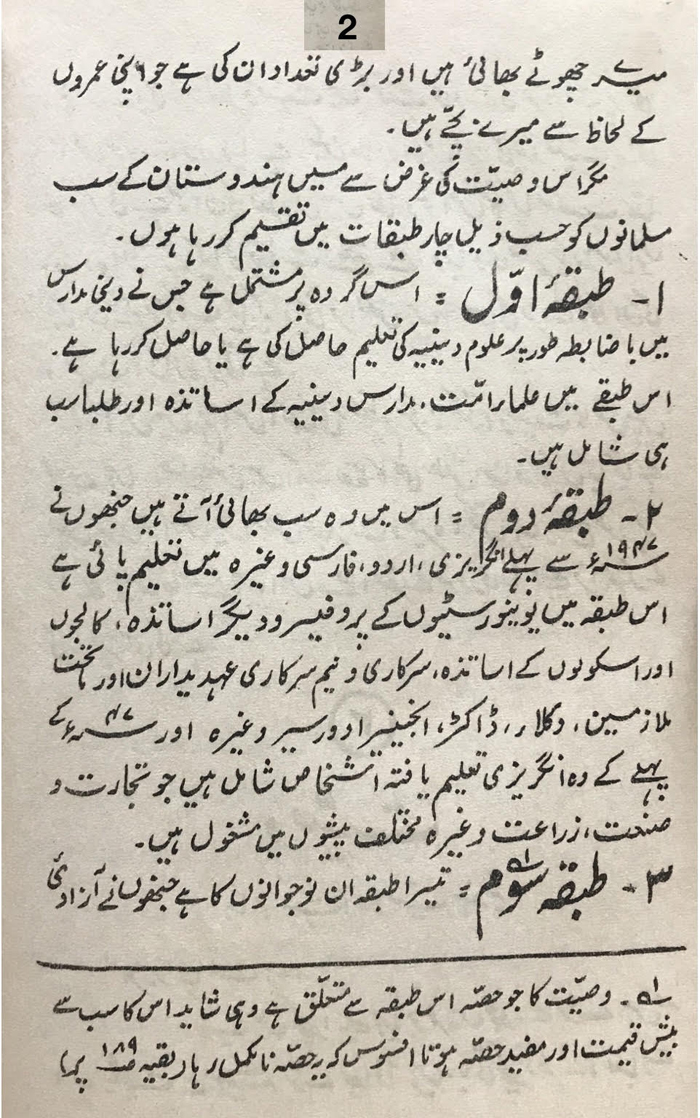 2
میرے چھوٹے بھائی ہیں اور بڑی تعداد ان کی ہے جو اپنی عمروں
کے لحاظ سے میرے بچّے ہیں۔
مگر اس وصیّت کی غرض سے میں ہندوستان کے سب
مسلمانوں کو حسب ذیل چار طبقات میں تقسیم کر رہا ہوں۔
۱- طبقۂ اوّل = اس گروہ پر مشتمل ہے جس نے دینی مدارس
میں باضابطہ طور پر علوم دینیہ کی تعلیم حاصل کی ہے یا حاصل کر رہا ہے۔
اس طبقے میں علماء امّت، مدارس دینیہ کے اساتذہ اور طلبا سب
ہی شامل ہیں۔
۲- طبقۂ دوم = اس میں وہ سب بھائی آتے ہیں جنھوں نے
۱۹۴۷ء سے پہلے انگریزی، اردو، فارسی وغیرہ میں تعلیم پائی ہے
اس طبقہ میں یونیورسٹیوں کے پروفیسر و دیگر اساتذہ، کالجوں
اور اسکولوں کے اساتذہ، سرکاری و نیم سرکاری عہدیداران اور تحت
ملازمین، وکلاء، ڈاکٹر، انجینیر اوورسیر وغیرہ اور ۴۷ء کے
پہلے کے وہ انگریزی تعلیم یافتہ اشخاص شامل ہیں جو تجارت و
صنعت، زراعت وغیرہ مختلف پیشوں میں مشغول ہیں۔
۳- طبقۂ سوم لہ = تیسرا طبقہ ان نوجوانوں کا ہے جنھوں نے آزادیٔ
لہ۔ وصیّت کا جو حصّہ اس طبقہ سے متعلّق ہے وہی شاید اس کا سب سے
بیش قیمت اور مفید حصّہ ہوتا افسوس کہ یہ حصّہ نامکمل رہا (بقیہ ص۱۸۹ پر)